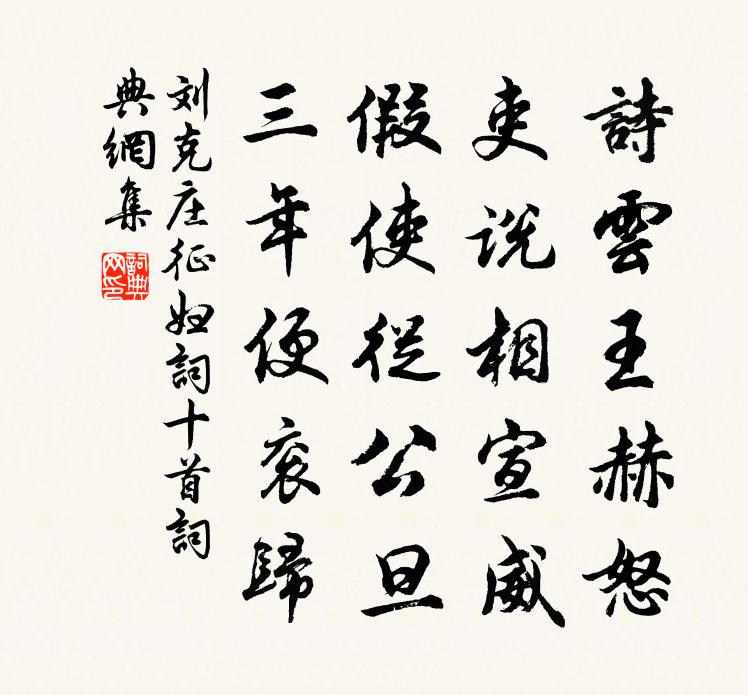 詩雲王赫怒
吏説相宣威
假使從公旦
三年便衮歸
刘克庄征妇詞十首詞
典網集
詞典
网印